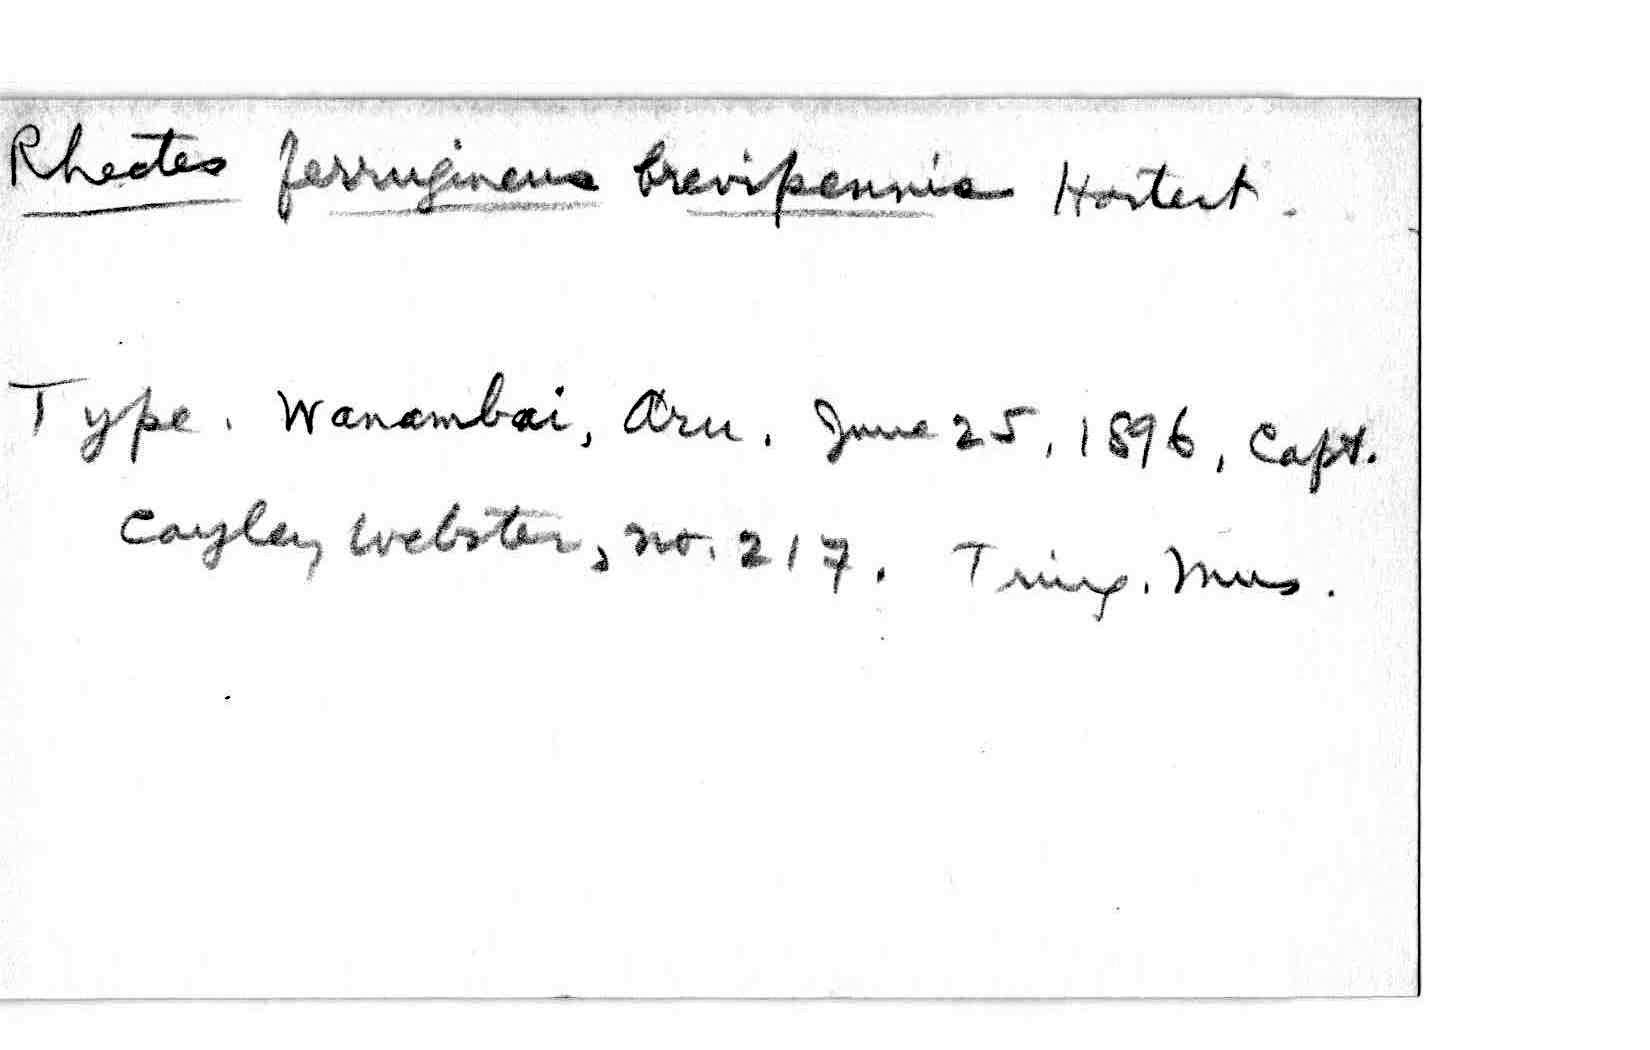 Rhectes ferrugineus brevipennis Hartert.
Type. Wanambai, Aru. June 25, 1896, Capt.
Cayley Webster, no. 217. Tring. Mus.